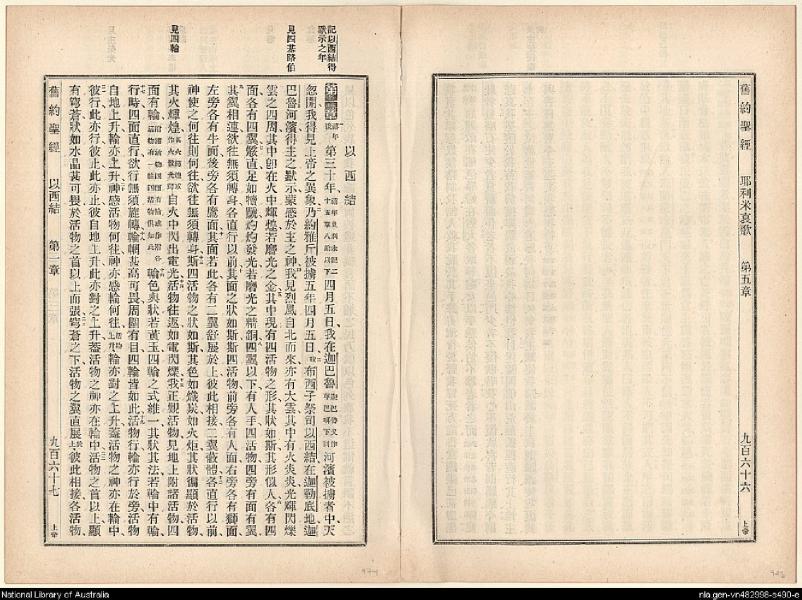 舊約聖經 耶利米哀歌 第五章 九百六十六 上帝
記以西結得
默示之年
見四基路伯
見四輪
以西結
第一章
第三十年 四月五日我在迦巴魯 河濱被擄者中天
忽開我得見上帝之異象乃約雅斤被擄五年四月五日 布西子祭司以西結在迦勒底地迦
巴魯河濱得主之默示蒙感於主之神我見烈風自北而來亦有大雲其中有火炎炎光輝閃爍
雲之四周其中即在火中輝煌若磨光之金其中現有四活物之形其狀如斯其形似人各有四
面各有四翼骽直足如犢蹏灼灼發光若磨光之精銅四翼以下有人手四活物四旁有面有翼
其翼相連欲往無須轉身各直行以前其面之狀如斯斯四活物前旁各有人面右旁各有獅面
左旁各有牛面後旁各有鷹面其面若此各有二翼舒展於上彼此相接二翼蔽體各直行以前
神使之何往則何往欲往無須轉身斯四活物之狀如斯其色如熾炭如火炬其狀徧顯於活物
其火輝煌 自火中閃出電光活物往返如電閃爍我正觀活物見地上附諸活物四
面有輪 輪色與狀若黃玉四輪之式維一其狀其法若輪中有輪
行時四面直行欲行無須旋轉輪輞甚高可畏周圍有目四輪皆如此活物行輪亦行於旁活物
自地上升輪亦上升神感活物何往神亦感輪何往 輪亦對之上升蓋活物之神亦在輪中
彼行此亦行彼止此亦止彼自地上升此亦對之上升蓋活物之神亦在輪中活物之首以上顯
有穹蒼狀如水晶甚可畏於活物之首以上而張穹蒼之下活物之翼直展 彼此相接各活物
舊約聖經 以西結 第一章 九百六十七 上帝
National Library of Australia
nla.gen-vn482998-s490-e